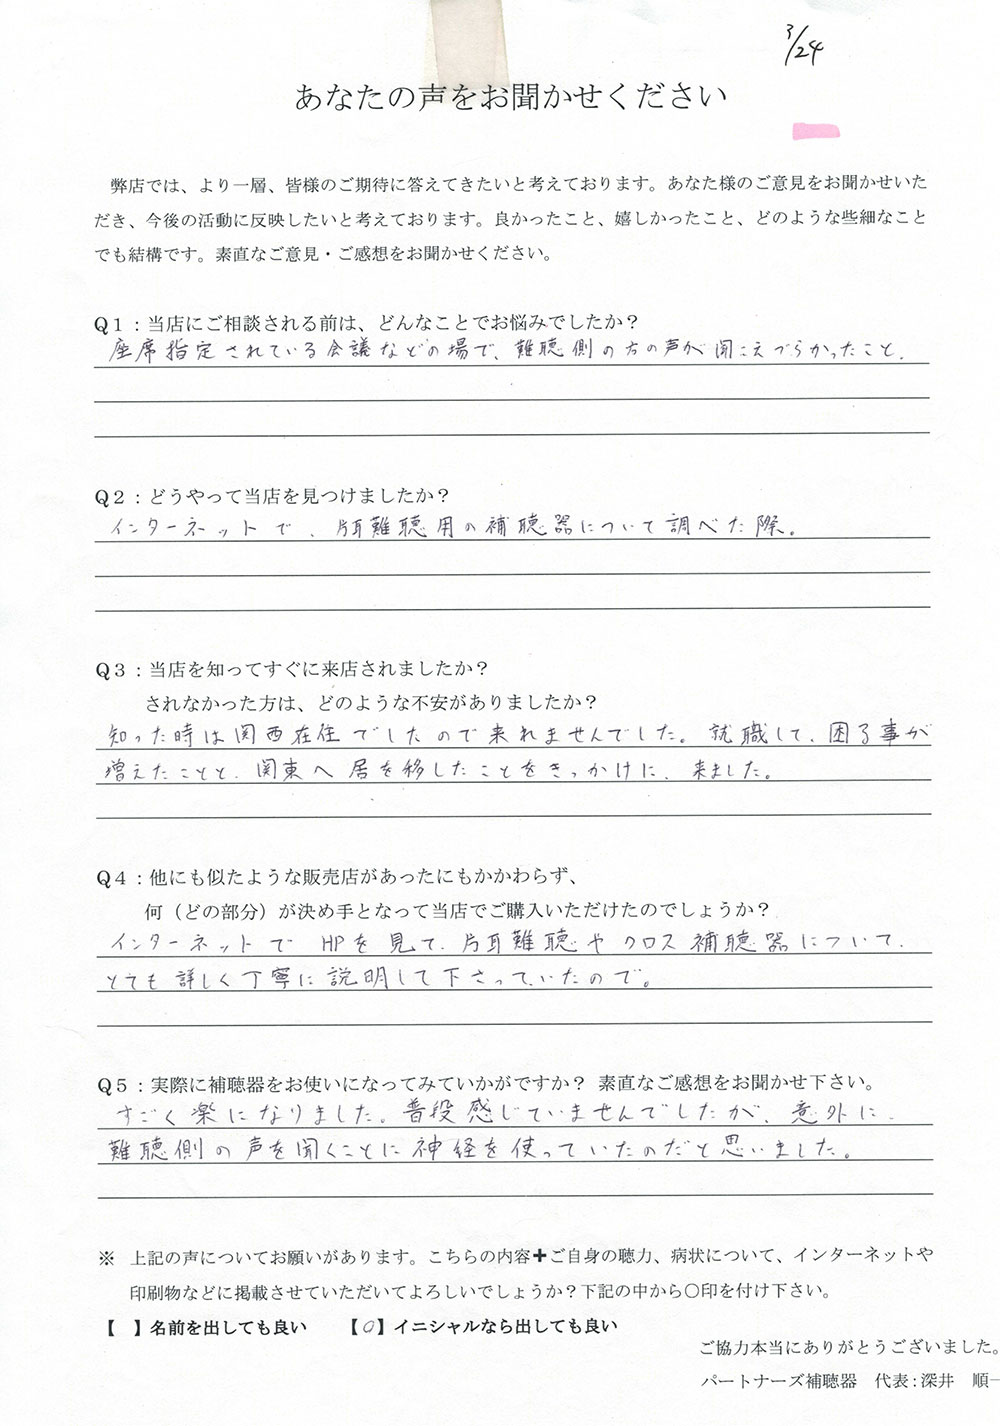 3/24
あなたの声をお聞かせください
弊店では、より一層、皆様のご期待に答えてきたいと考えております。あなた様のご意見をお聞かせいた
だき、今後の活動に反映したいと考えております。良かったこと、嬉しかったこと、どのような些細なこと
でも結構です。素直なご意見・ご感想をお聞かせください。
Q1：当店にご相談される前は、どんなことでお悩みでしたか？
座席指定されている会議などの場で、難聴側の方の声が聞こえづらかったこと。
Q2：どうやって当店を見つけましたか？
インターネットで、片耳難聴用の補聴器について調べた際。
Q3：当店を知ってすぐに来店されましたか？
されなかった方は、どのような不安がありましたか？
知った時は関西在住でしたので来れませんでした。就職して、困る事が
増えたことと、関東へ居を移したことをきっかけに、来ました。
Q4：他にも似たような販売店があったにもかかわらず、
何（どの部分）が決め手となって当店でご購入いただけたのでしょうか？
インターネットでHPを見て、片耳難聴やクロス補聴器について、
とても詳しく丁寧に説明して下さっていたので。
Q5：実際に補聴器をお使いになってみていかがですか？ 素直なご感想をお聞かせ下さい。
すごく楽になりました。普段感じていませんでしたが、意外に、
難聴側の声を聞くことに神経を使っていたのだと思いました。
※ 上記の声についてお願いがあります。こちらの内容✚ご自身の聴力、病状について、インターネットや
印刷物などに掲載させていただいてよろしいでしょうか？下記の中から〇印を付け下さい。
【　】名前を出しても良い　　【○】イニシャルなら出しても良い
ご協力本当にありがとうございました。
パートナーズ補聴器　代表：深井　順一